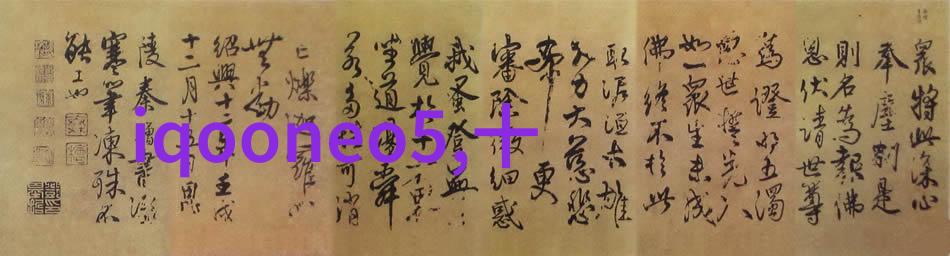 衆將此深心
奉塵刹是
則名為報佛
恩伏請世尊
為證明五濁
惡世誓先入
如一衆生未成
佛終不於此
取泥洹大雄
大力大慈悲
希更
審除微細惑
我蚤登無上
覺於十方界
坐道場舜
若多性可消
亡爍迦羅心
無動
紹興十二年壬戌
十二月十五日
陵秦檜書
寒筆凍殊不
能工也
iqooneo5,十